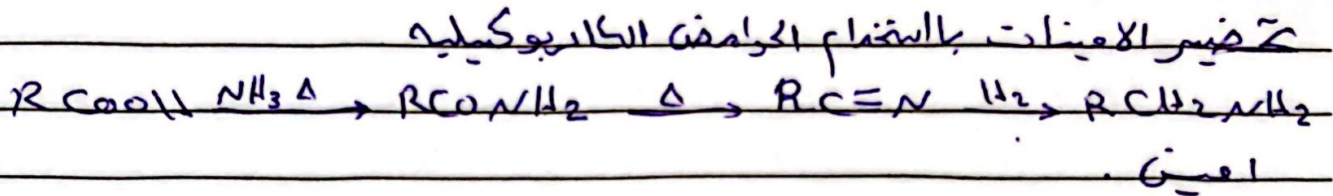 تحضير الامينات بالستخدام الحوامض الكاربوكسيليه
RCOOH NH3 Δ → RCONH2 Δ → RC=N H2 → RCH2NH2
امين.